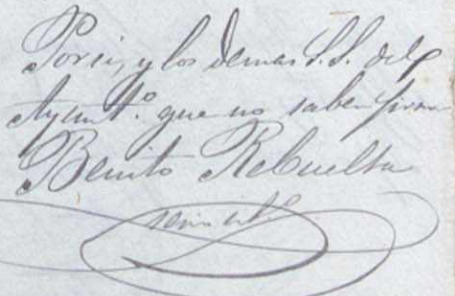 Por si, y los demas S.S. del
Ayunt.º que no saben firmar
Benito Rebuelta